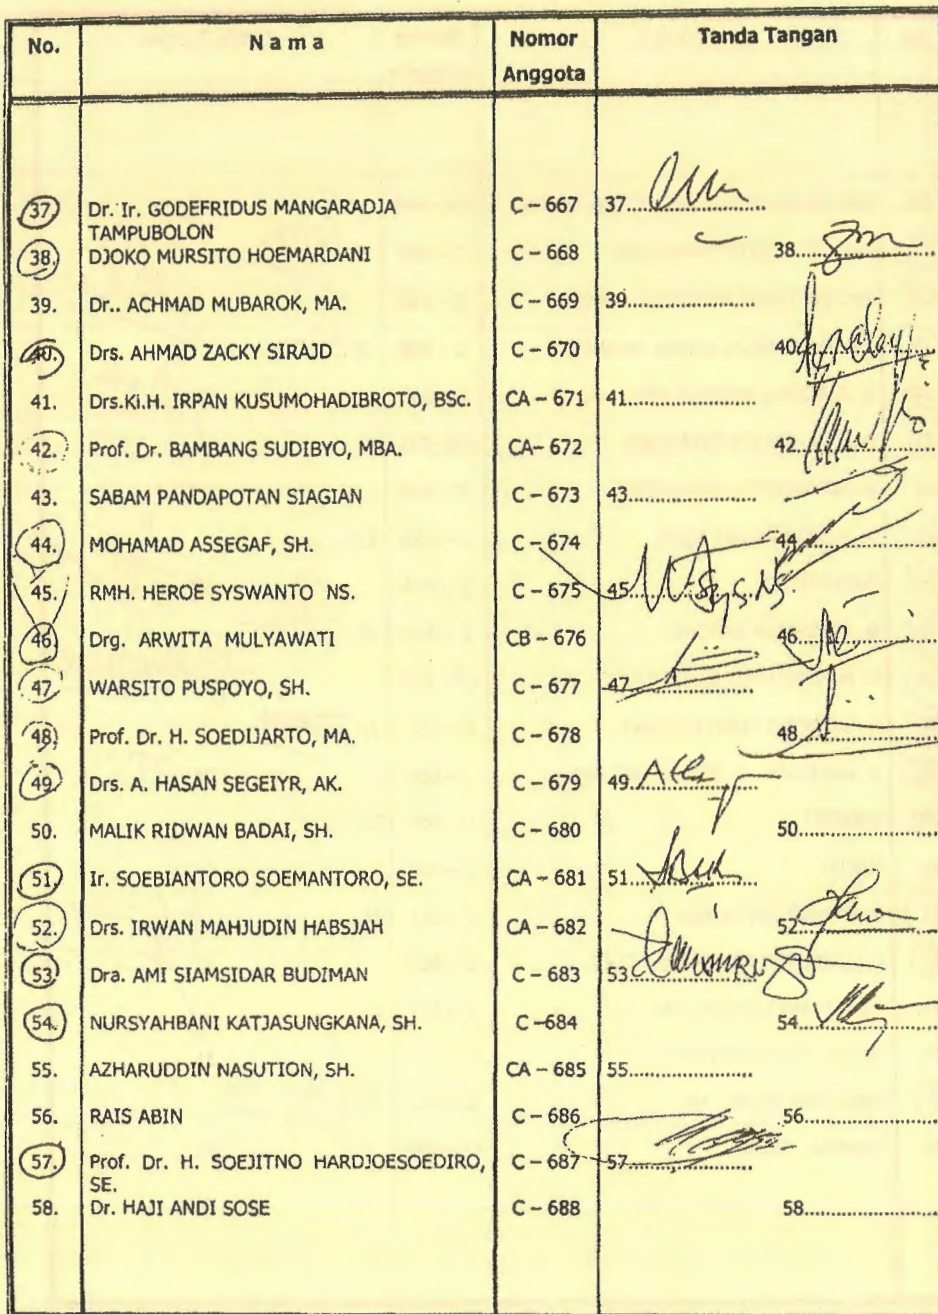 No. N a m a Nomor Anggota Tanda Tangan
37. Dr. Ir. GODEFRIDUS MANGARADJA TAMPUBOLON C – 667 37....................
38. DJOKO MURSITO HOEMARDANI C – 668 38....................
39. Dr.. ACHMAD MUBAROK, MA. C – 669 39....................
40. Drs. AHMAD ZACKY SIRAJD C – 670 40....................
41. Drs.Ki.H. IRPAN KUSUMOHADIBROTO, BSc. CA – 671 41....................
42. Prof. Dr. BAMBANG SUDIBYO, MBA. CA– 672 42....................
43. SABAM PANDAPOTAN SIAGIAN C – 673 43....................
44. MOHAMAD ASSEGAF, SH. C – 674 44....................
45. RMH. HEROE SYSWANTO NS. C – 675 45....................
46. Drg. ARWITA MULYAWATI CB – 676 46....................
47. WARSITO PUSPOYO, SH. C – 677 47....................
48. Prof. Dr. H. SOEDIJARTO, MA. C – 678 48....................
49. Drs. A. HASAN SEGEIYR, AK. C – 679 49....................
50. MALIK RIDWAN BADAI, SH. C – 680 50....................
51. Ir. SOEBIANTORO SOEMANTORO, SE. CA – 681 51....................
52. Drs. IRWAN MAHJUDIN HABSJAH CA – 682 52....................
53. Dra. AMI SIAMSIDAR BUDIMAN C – 683 53....................
54. NURSYAHBANI KATJASUNGKANA, SH. C –684 54....................
55. AZHARUDDIN NASUTION, SH. CA – 685 55....................
56. RAIS ABIN C – 686 56....................
57. Prof. Dr. H. SOEJITNO HARDJOESOEDIRO, SE. C – 687 57....................
58. Dr. HAJI ANDI SOSE C – 688 58....................